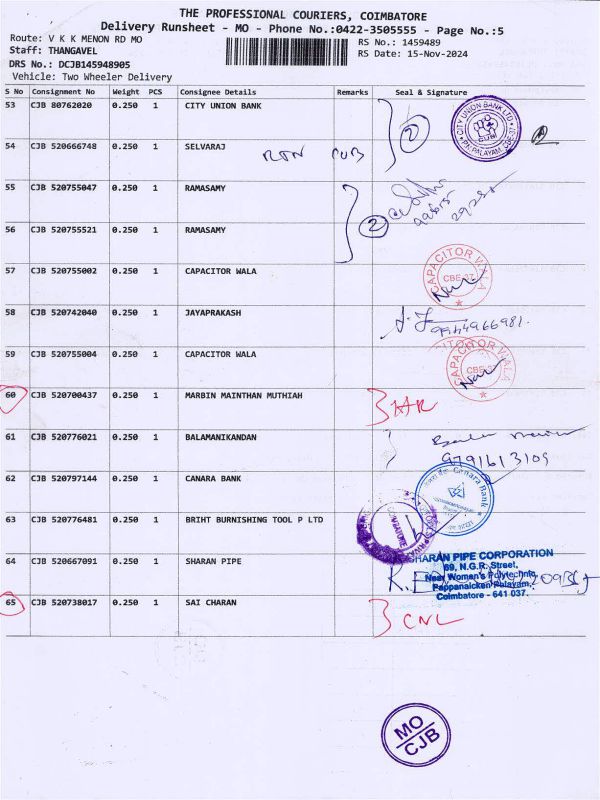 THE PROFESSIONAL COURIERS, COIMBATORE
Delivery Runsheet - MO - Phone No.:0422-3505555 - Page No.:5
Route: V K K MENON RD MO
RS No.: 1459489
Staff: THANGAVEL
RS Date: 15-Nov-2024
DRS No.: DCJB145948905
Vehicle: Two Wheeler Delivery
S No Consignment No Weight PCS Consignee Details Remarks Seal & Signature
53 CJB 80762020 0.250 1 CITY UNION BANK
CITY UNION BANK LTD
CUB
P.N.PALAYAM, CBE-37
2
54 CJB 520666748 0.250 1 SELVARAJ
55 CJB 520755047 0.250 1 RAMASAMY
2
56 CJB 520755521 0.250 1 RAMASAMY
57 CJB 520755002 0.250 1 CAPACITOR WALA
CAPACITOR WALA
CBE-37
58 CJB 520742040 0.250 1 JAYAPRAKASH
9944966981.
59 CJB 520755004 0.250 1 CAPACITOR WALA
CAPACITOR WALA
CBE-37
60 CJB 520700437 0.250 1 MARBIN MAINTHAN MUTHIAH
61 CJB 520776021 0.250 1 BALAMANIKANDAN
9791613109
62 CJB 520797144 0.250 1 CANARA BANK
Canara Bank
63 CJB 520776481 0.250 1 BRIHT BURNISHING TOOL P LTD
COIMBATORE
64 CJB 520667091 0.250 1 SHARAN PIPE
SHARAN PIPE CORPORATION
69, N.G.R. Street,
Near Women's Polytechnic,
Pappanaicken Palayam,
Coimbatore - 641 037.
65 CJB 520738017 0.250 1 SAI CHARAN
CNL
MO
CJB